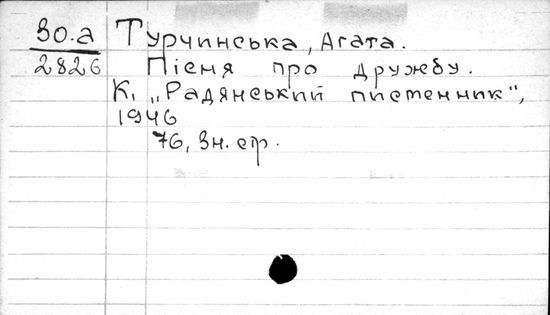 30.а
2826
Турчинська, Агата.
Пісня про дружбу.
К., „Радянський письменник",
1946
76, 3н. стр.